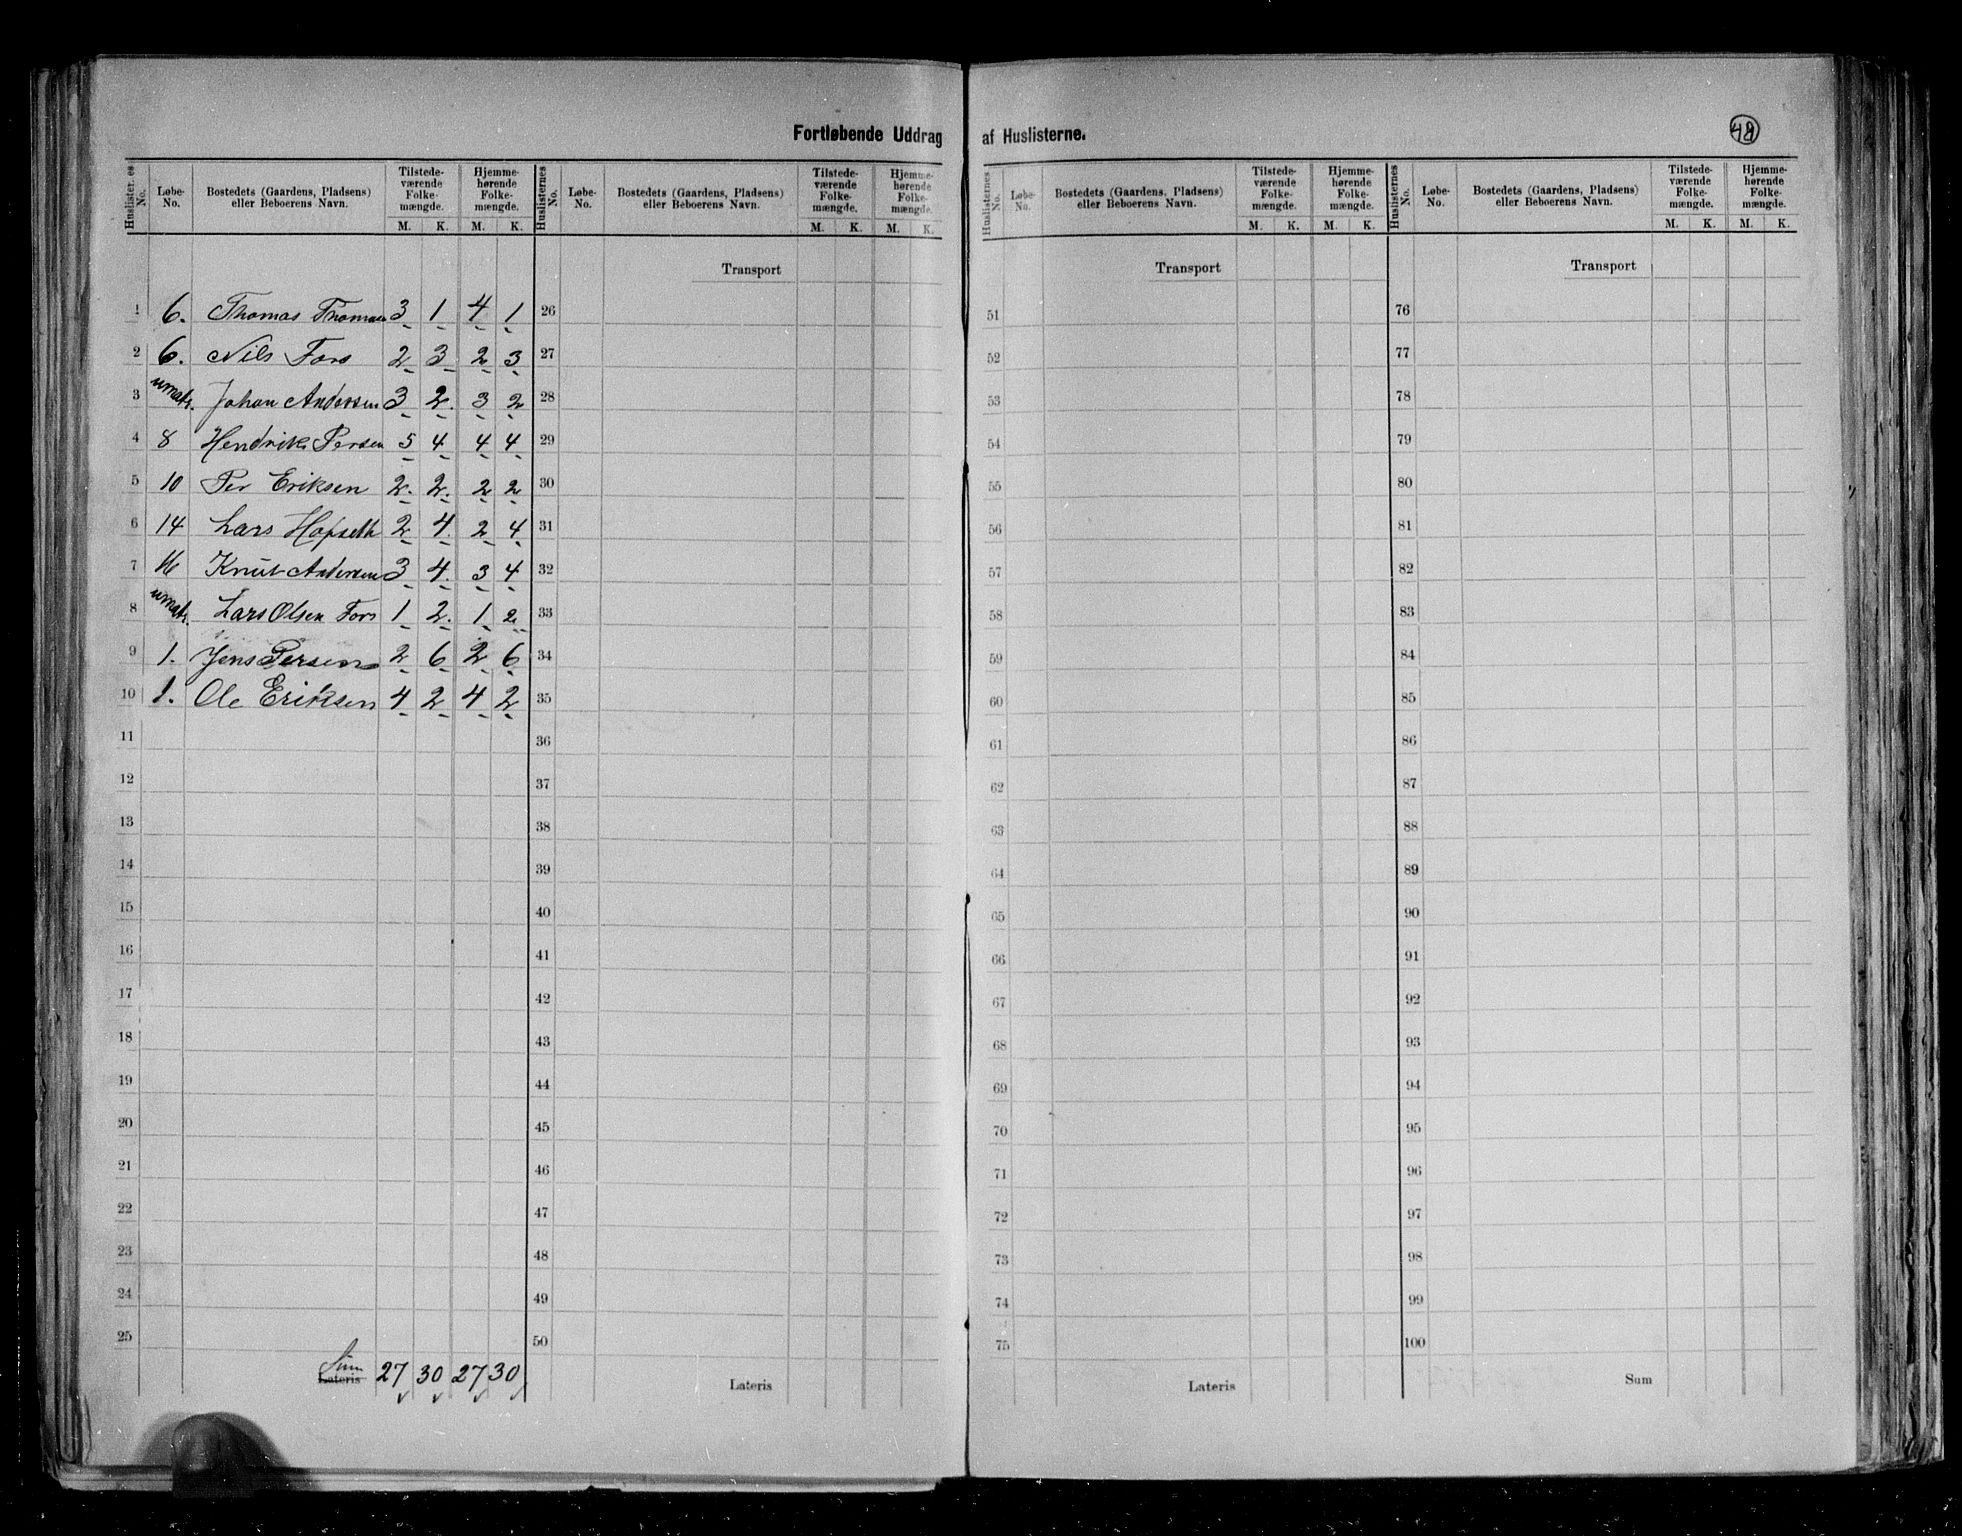 Fortløbende Uddrag af Huslisternes.
48
Huslisternes No. Løbe-No. Bostedets (Gaardens, Pladsens) eller Beboerens Navn. Tilstedeværende Folkemængde. M. K. Hjemmehørende Folkemængde. M. K.
1 6. Thomas Thomasen 3 1 4 1
2 6. Nils Fors 2 3 2 3
3 umatr. Johan Andersen 3 2 3 2
4 8 Hendrik Persen 5 4 4 4
5 10 Per Eriksen 2 2 2 2
6 14 Lars Hopseth 2 4 2 4
7 16 Knut Andersen 3 4 3 4
8 umatr. Lars Olsen Fors 1 2 1 2
9 1. Jens Persen 2 6 2 6
10 1. Ole Eriksen 4 2 4 2
11
12
13
14
15
16
17
18
19
20
21
22
23
24
25
Sum
Lateris 27 30 27 30
Huslisternes No. Løbe-No. Bostedets (Gaardens, Pladsens) eller Beboerens Navn. Tilstedeværende Folkemængde. M. K. Hjemmehørende Folkemængde. M. K.
Transport
26
27
28
29
30
31
32
33
34
35
36
37
38
39
40
41
42
43
44
45
46
47
48
49
50
Lateris
Huslisternes No. Løbe-No. Bostedets (Gaardens, Pladsens) eller Beboerens Navn. Tilstedeværende Folkemængde. M. K. Hjemmehørende Folkemængde. M. K.
Transport
51
52
53
54
55
56
57
58
59
60
61
62
63
64
65
66
67
68
69
70
71
72
73
74
75
Lateris
Huslisternes No. Løbe-No. Bostedets (Gaardens, Pladsens) eller Beboerens Navn. Tilstedeværende Folkemængde. M. K. Hjemmehørende Folkemængde. M. K.
Transport
76
77
78
79
80
81
82
83
84
85
86
87
88
89
90
91
92
93
94
95
96
97
98
99
100
Sum